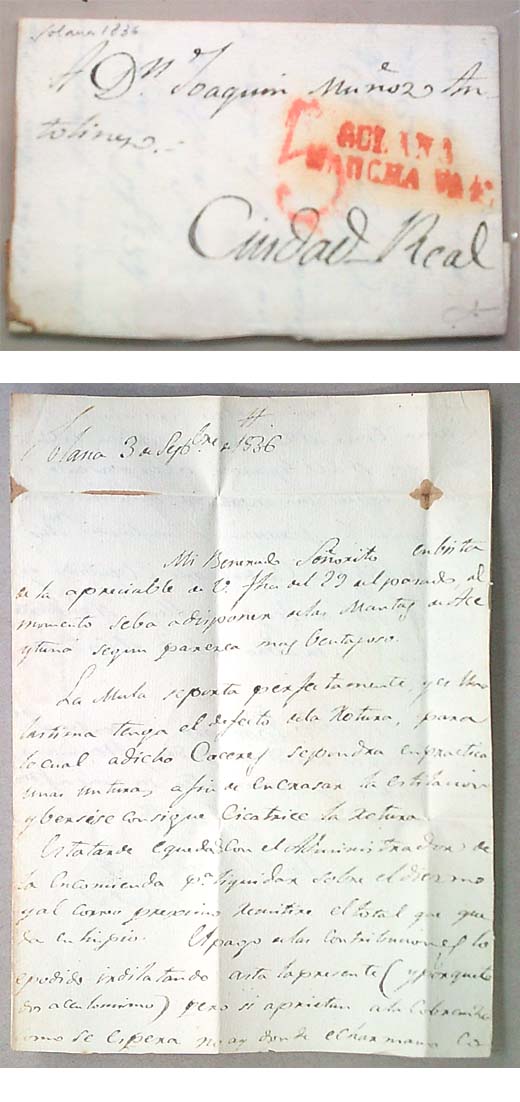 Solana 1836
A Dn. Joaquin Muñoz An-
tolinez.-
5
SOLANA
MANCHA
Ciudad-Real
Solana 3 de Sepbre. de 1836
Mi Benerado Señorito enbista
de la apreciable de V. fha del 29 del pasado, al
momento seba adisponer delas Mantas de Ace
ytuna segun paresca mas bentajoso.
La Mula seporta perfectamente, y es una
lastima tenga el defecto dela Rotura, para
lo cual a dicho Caceres sepondra enpractica
unas unturas, afin de encrasar la estilacion
y berse se consigue Cicatrice la Rotura.
Esta tarde e quedado Con el Administrador de
la Encomienda pa. liquidar sobre el diezmo
y al correo procsimo Remitire el total que que
da en limpio. El pago delas contribuciones lo
e podido ir dilatando asta la presente (y porque
) pero si aprietan a la Cobranza
como se espera no ay donde echar mano